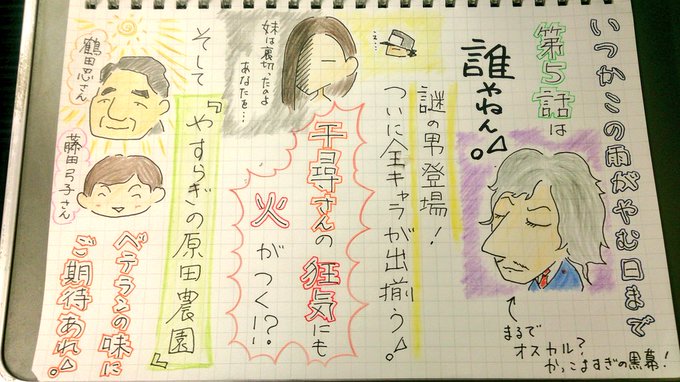 いつかこの雨がやむ日まで
第5話は
誰やねん。
まるで
オスカル?
かっこよすぎの黒幕!
謎の男登場!
ついに全キャラが出揃う。
え…
妹は裏切ったのよ
あなたを…
千尋さんの狂気にも
火がつく!?
そして
『やすらぎの原田農園』
鶴田忍さん
藤田弓子さん
ベテランの味に
ご期待あれ。